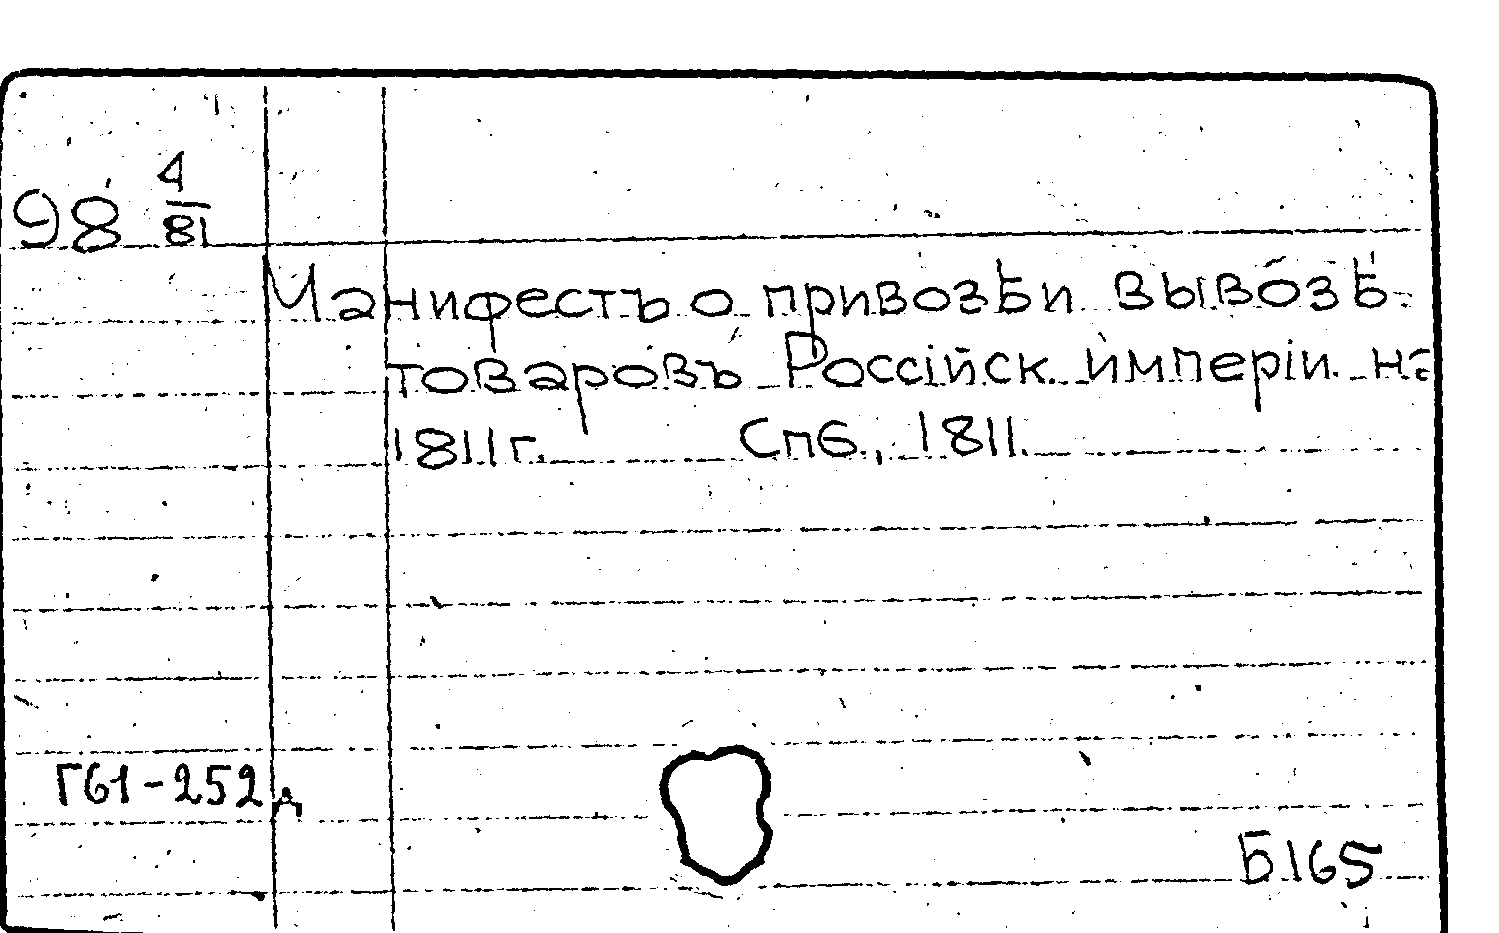 98 4/81
Манифестъ о привозѣ и вывозѣ
товаровъ Россійск. имперіи на
1811 г. Спб., 1811.
Г61-252 д
Б165